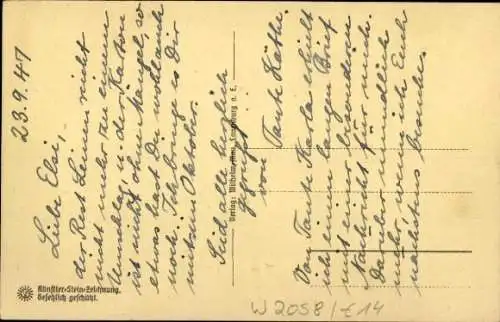 23.9.47
Liebe Elsi,
der Rest Leinen reicht
nicht mehr zu einem
Umschlag u. der Karton
ist nicht ohne Mängel, so
etwas hast Du wohl auch
noch. Ich bringe es Dir
mit im Oktober.
Seid alle herzlich
gegrüßt
von Tante Käthe.
Von Tante Karla erhielt
ich einen langen Brief
mit einer besonderen
Nachricht für mich.
Darüber mündlich
mehr, wenn ich Euch
nächstens besuche.
Verlag: Wilhelm Lüneburg a. E.
Künstler-Stein-Zeichnung.
Gesetzlich geschützt.
W 2058 / € 14